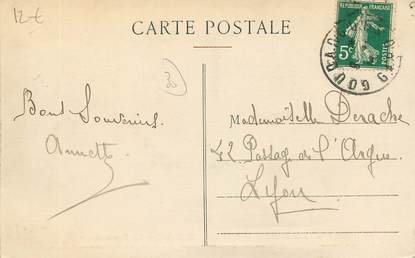 12-€
CARTE POSTALE
REPUBLIQUE FRANCAISE
5c
POSTES
30
Bons Souvenirs.
Annette
Mademoiselle Derache
42 Passage de l'Argue
Lyon